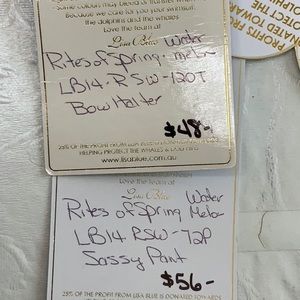 some colours may bleed or transfer when
Because we care for your swimsuit,
the dolphins and the whales
Love the team at
Lisa Blue Water
Rites of Spring - Meter
LB14 - RSW - 120T
Bow Halter
$48-
25% OF THE PROFIT FROM LISA BLUE IS DONATED TOWARDS
HELPING PROTECT THE WHALES &
www.lisablue.com.au
Love the team at
Lisa Blue Water
Rites of Spring Meter
LB14 RSW - 72P
Sassy Pant
$56-
25% OF THE PROFIT FROM LISA BLUE IS DONATED TOWARDS
PROFITS FR
NATED TOWAR